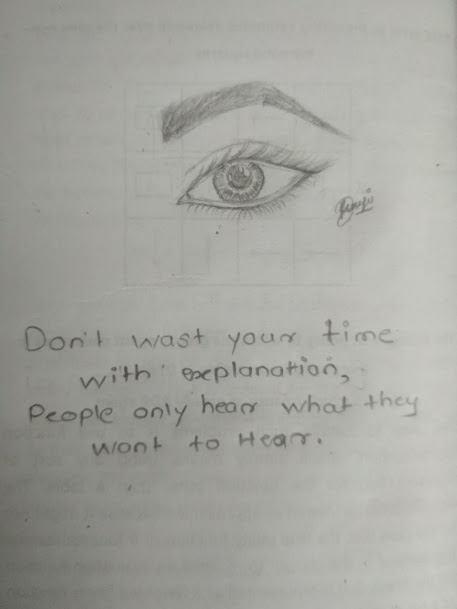 Don't wast your time
with explanation,
People only hear what they
want to Hear.